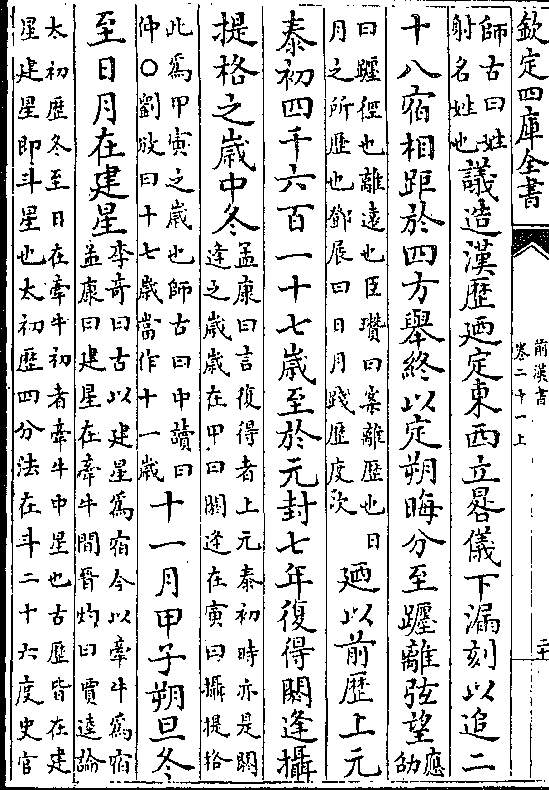 欽定四庫全書
前漢書
卷二十一上
二十
師古曰姓
射名姓也
議造漢歷廼定東西立晷儀下漏刻以追二
十八宿相距於四方舉終以定朔晦分至躔離弦望
應劭
曰躔徑也離遠也臣瓚曰案離歷也日
月之所歷也鄧展曰日月踐歷度次
廼以前歷上元
泰初四千六百一十七歲至於元封七年復得閼逢攝
提格之歲中冬
孟康曰言復得者上元泰初時亦是閼
逢之歲歲在甲曰閼逢在寅曰攝提格
此爲甲寅之歲也師古曰中讀曰
仲○劉攽曰十七歲當作十一歲
十一月甲子朔旦冬
至日月在建星
李奇曰古以建星爲宿今以牽牛爲宿
孟康曰建星在牽牛間晉灼曰賈逵論
太初歷冬至日在牽牛初者牽牛中星也古歷皆在建
星建星即斗星也太初歷四分法在斗二十六度史官